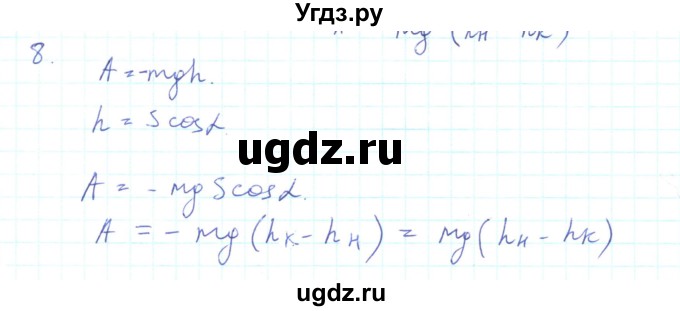 Угдз.ру
mg (hн hк)
8.
A = -mgh.
h = S cosα.
ugdz.ru
A = - mg S cosα.
A = - mg (hк - hн) = mg (hн - hк)
ugdz.ru